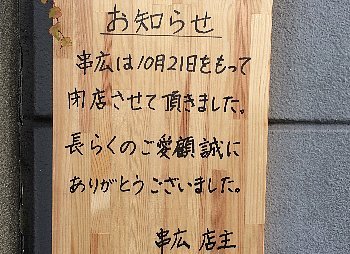 お知らせ
串広は10月21日をもって
閉店させて頂きました。
長らくのご愛顧誠に
ありがとうございました。
串広 店主